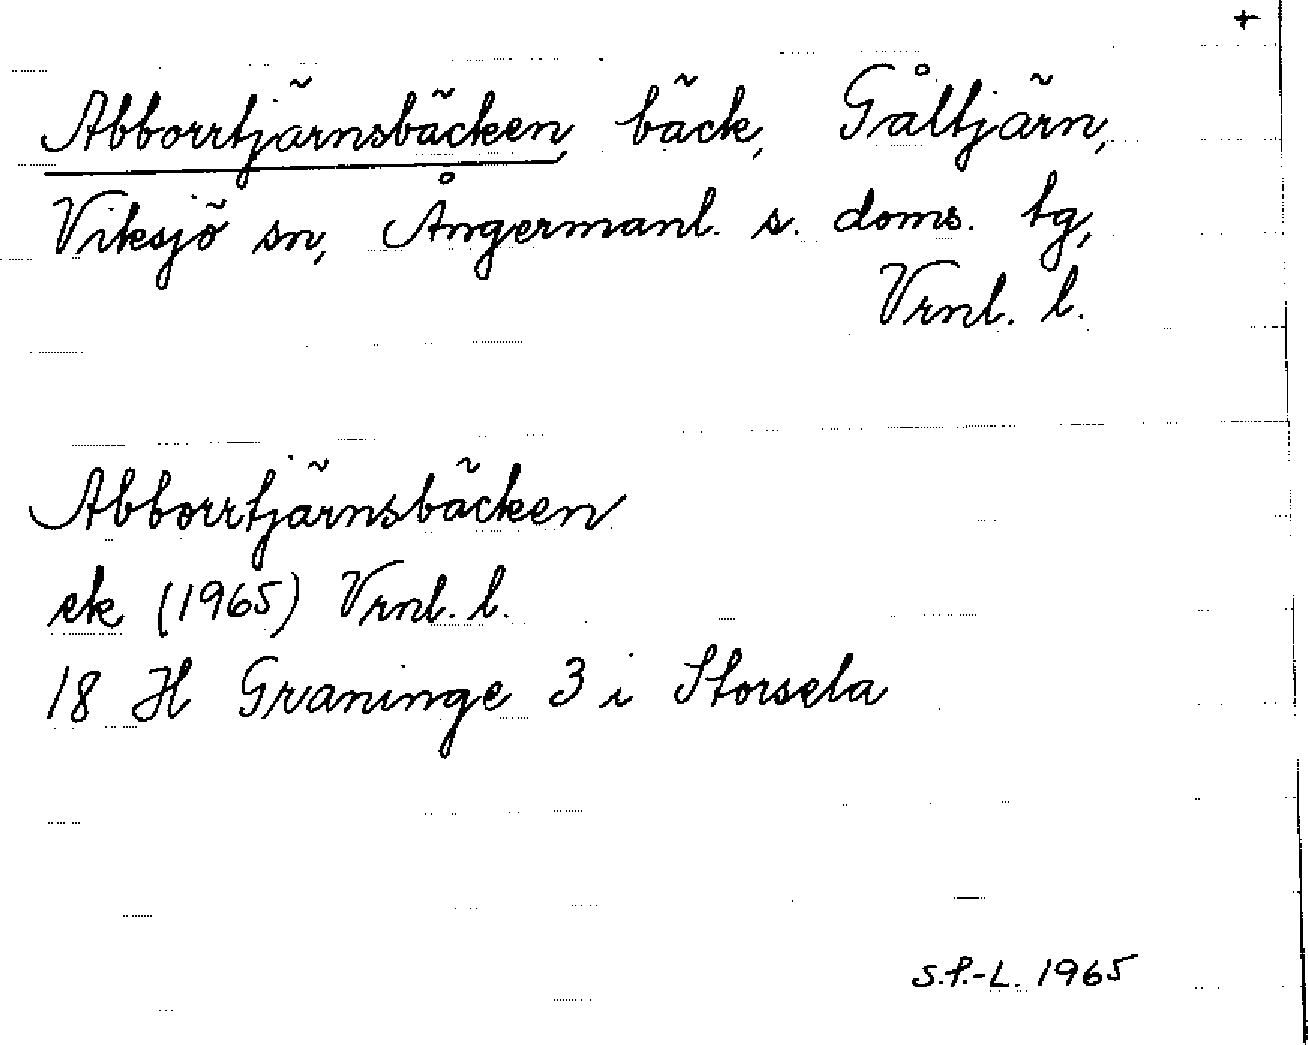 +
Abborrtjärnsbäcken, bäck, Gåltjärn,
Viksjö sn, Ångermanl. s. doms. tg,
Vrnl. l.
Abborrtjärnsbäcken
ek (1965) Vrnl. l.
18 H Graninge 3 i Storsela
S.P.-L. 1965